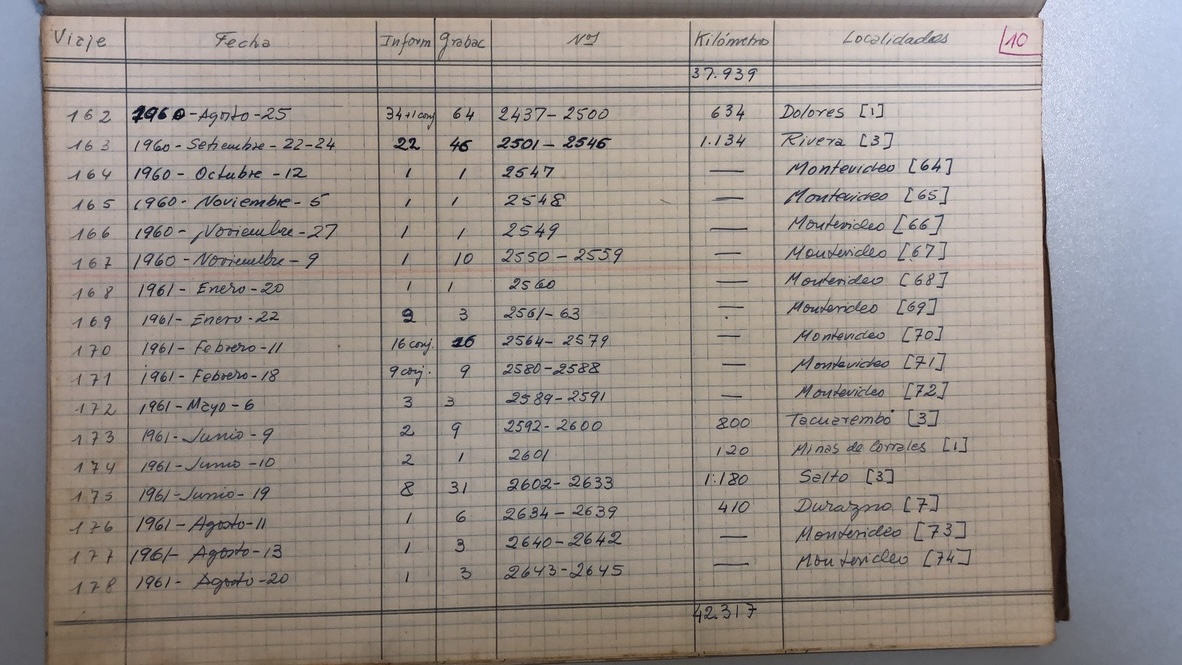 Viaje Fecha Inform Grabac Nos Kilómetro Localidades 10
37.939
162 1960 - Agosto - 25 34+1 conj 64 2437 - 2500 634 Dolores [1]
163 1960 - Setiembre - 22-24 22 46 2501 - 2546 1.134 Rivera [3]
164 1960 - Octubre - 12 1 1 2547 — Montevideo [64]
165 1960 - Noviembre - 5 1 1 2548 — Montevideo [65]
166 1960 - Noviembre - 27 1 1 2549 — Montevideo [66]
167 1960 - Noviembre - 9 1 10 2550 - 2559 — Montevideo [67]
168 1961 - Enero - 20 1 1 2560 — Montevideo [68]
169 1961 - Enero - 22 2 3 2561 - 63 — Montevideo [69]
170 1961 - Febrero - 11 16 conj. 16 2564 - 2579 — Montevideo [70]
171 1961 - Febrero - 18 9 conj. 9 2580 - 2588 — Montevideo [71]
172 1961 - Mayo - 6 3 3 2589 - 2591 — Montevideo [72]
173 1961 - Junio - 9 2 9 2592 - 2600 800 Tacuarembó [3]
174 1961 - Junio - 10 2 1 2601 120 Minas de Corrales [1]
175 1961 - Junio - 19 8 31 2602 - 2633 1.180 Salto [3]
176 1961 - Agosto - 11 1 6 2634 - 2639 410 Durazno [7]
177 1961 - Agosto - 13 1 3 2640 - 2642 — Montevideo [73]
178 1961 - Agosto - 20 1 3 2643 - 2645 — Montevideo [74]
42.317